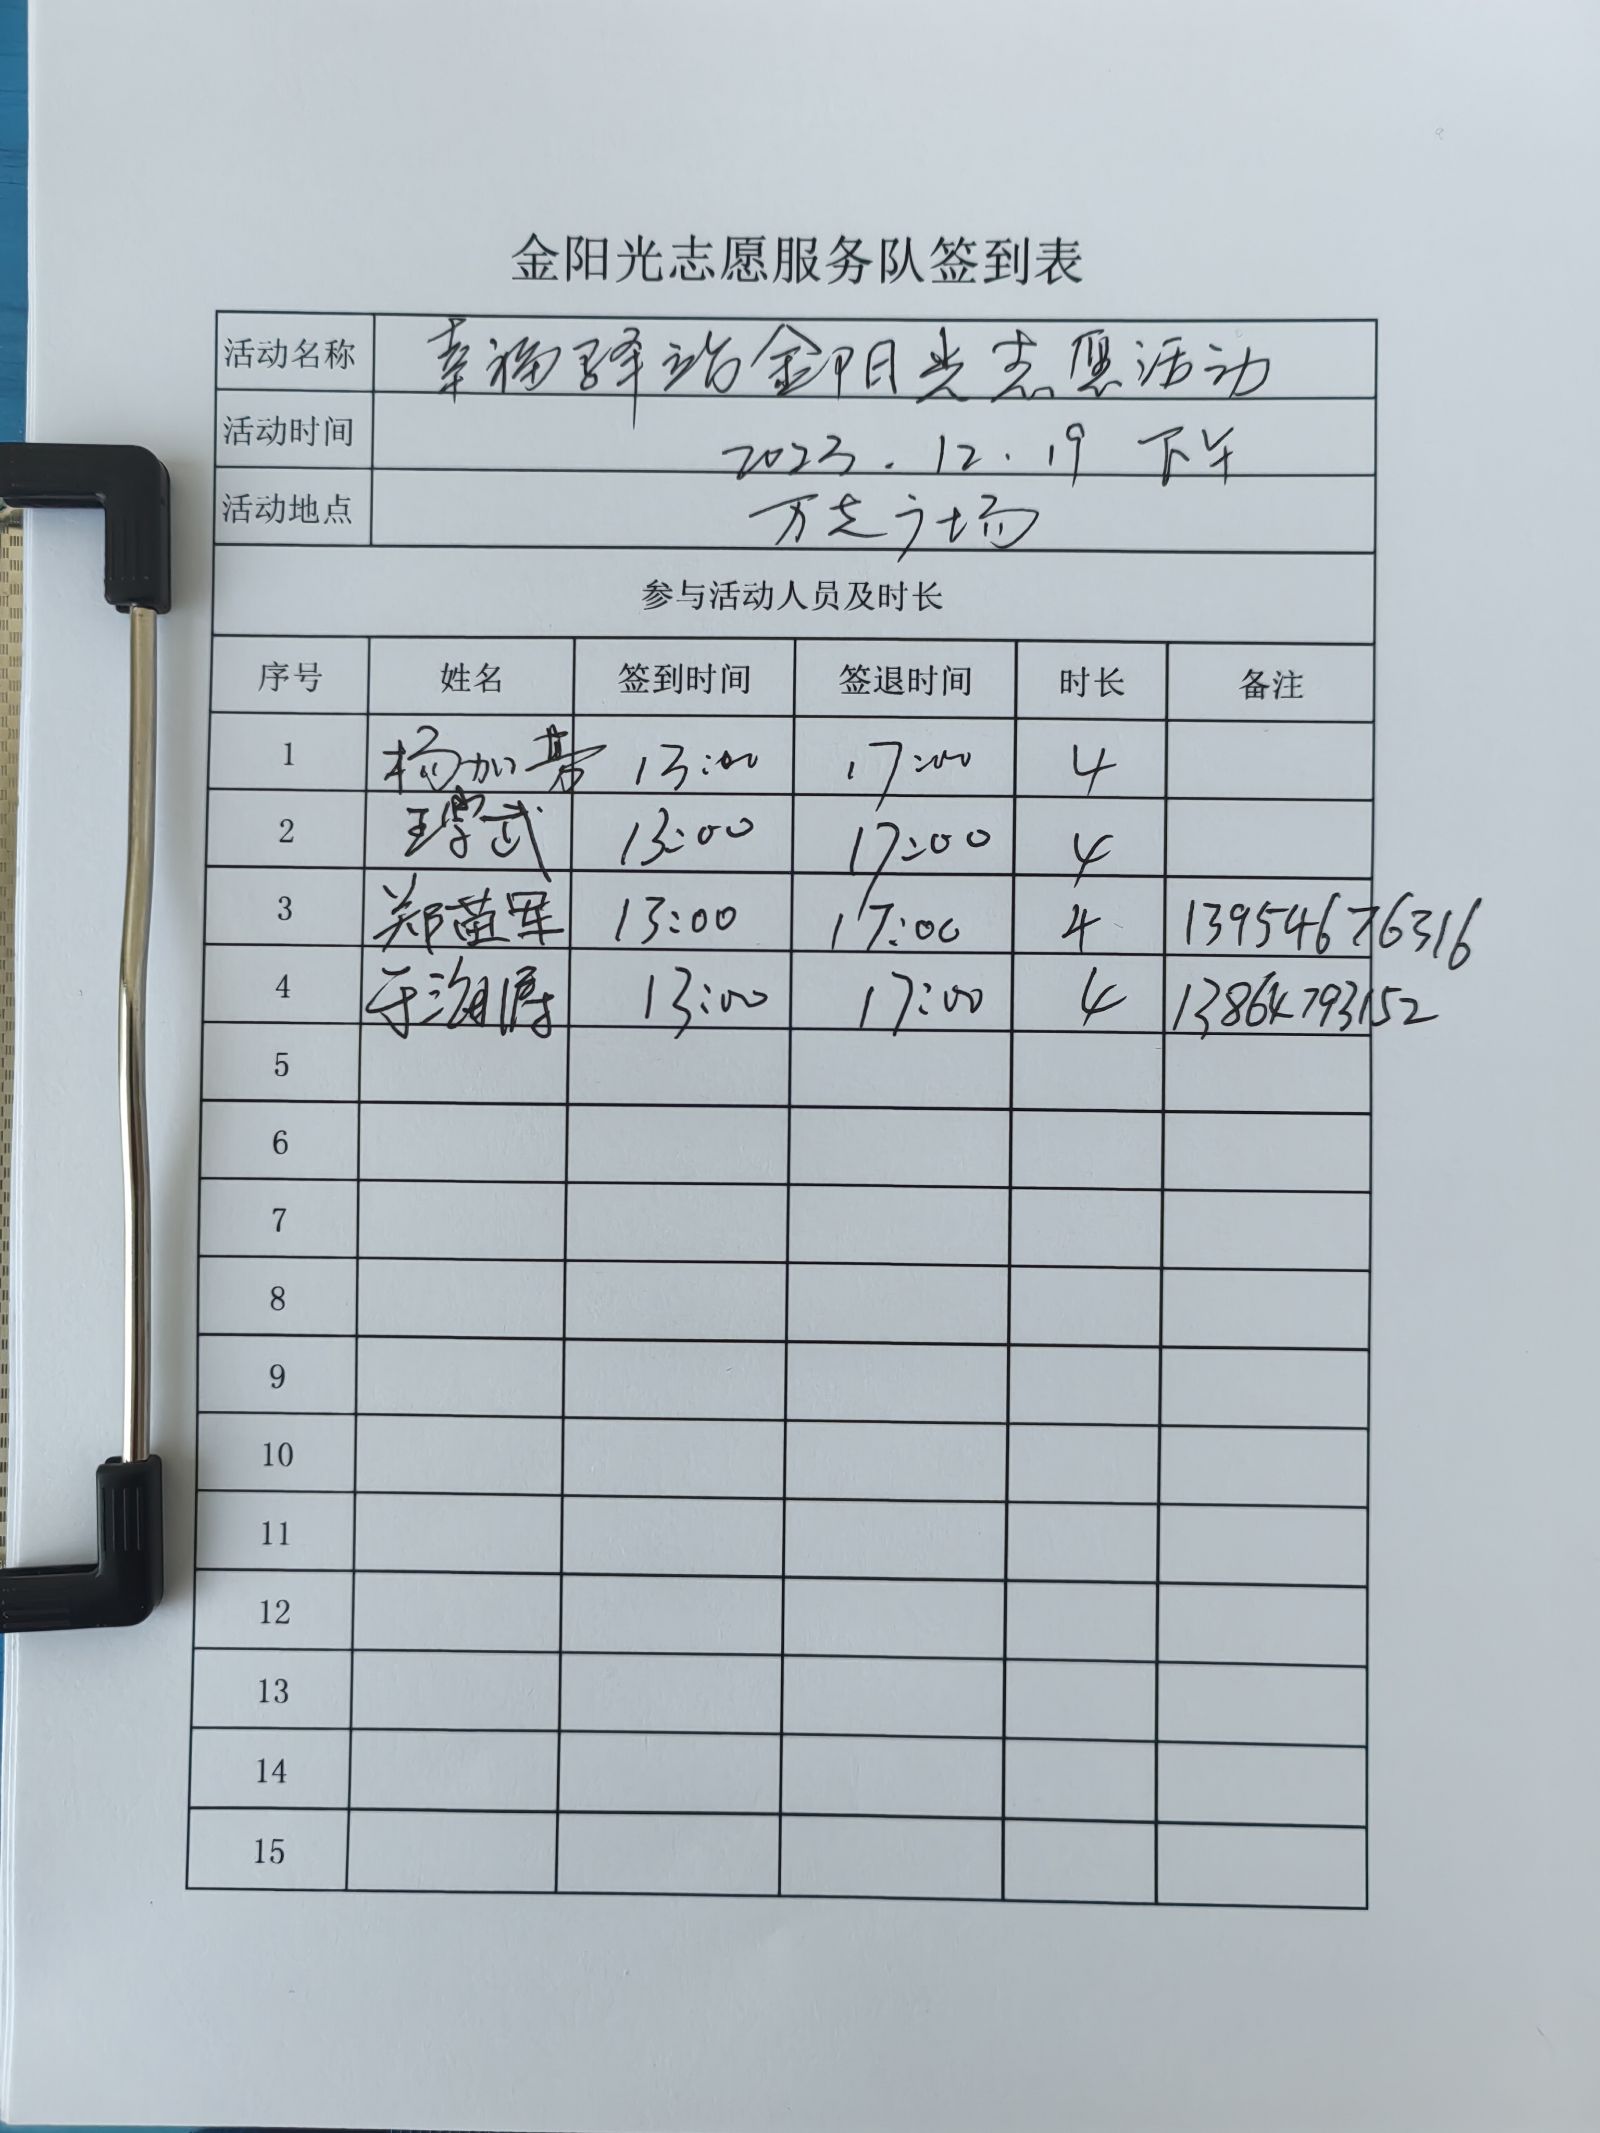 金阳光志愿服务队签到表
活动名称 幸福驿站金阳光志愿活动
活动时间 2023.12.19 下午
活动地点 万达广场
参与活动人员及时长
序号 姓名 签到时间 签退时间 时长 备注
1 杨加 13:00 17:00 4
2 王学武 13:00 17:00 4
3 郑苗军 13:00 17:00 4 13954676316
4 于海涛 13:00 17:00 4 13864793152
5
6
7
8
9
10
11
12
13
14
15